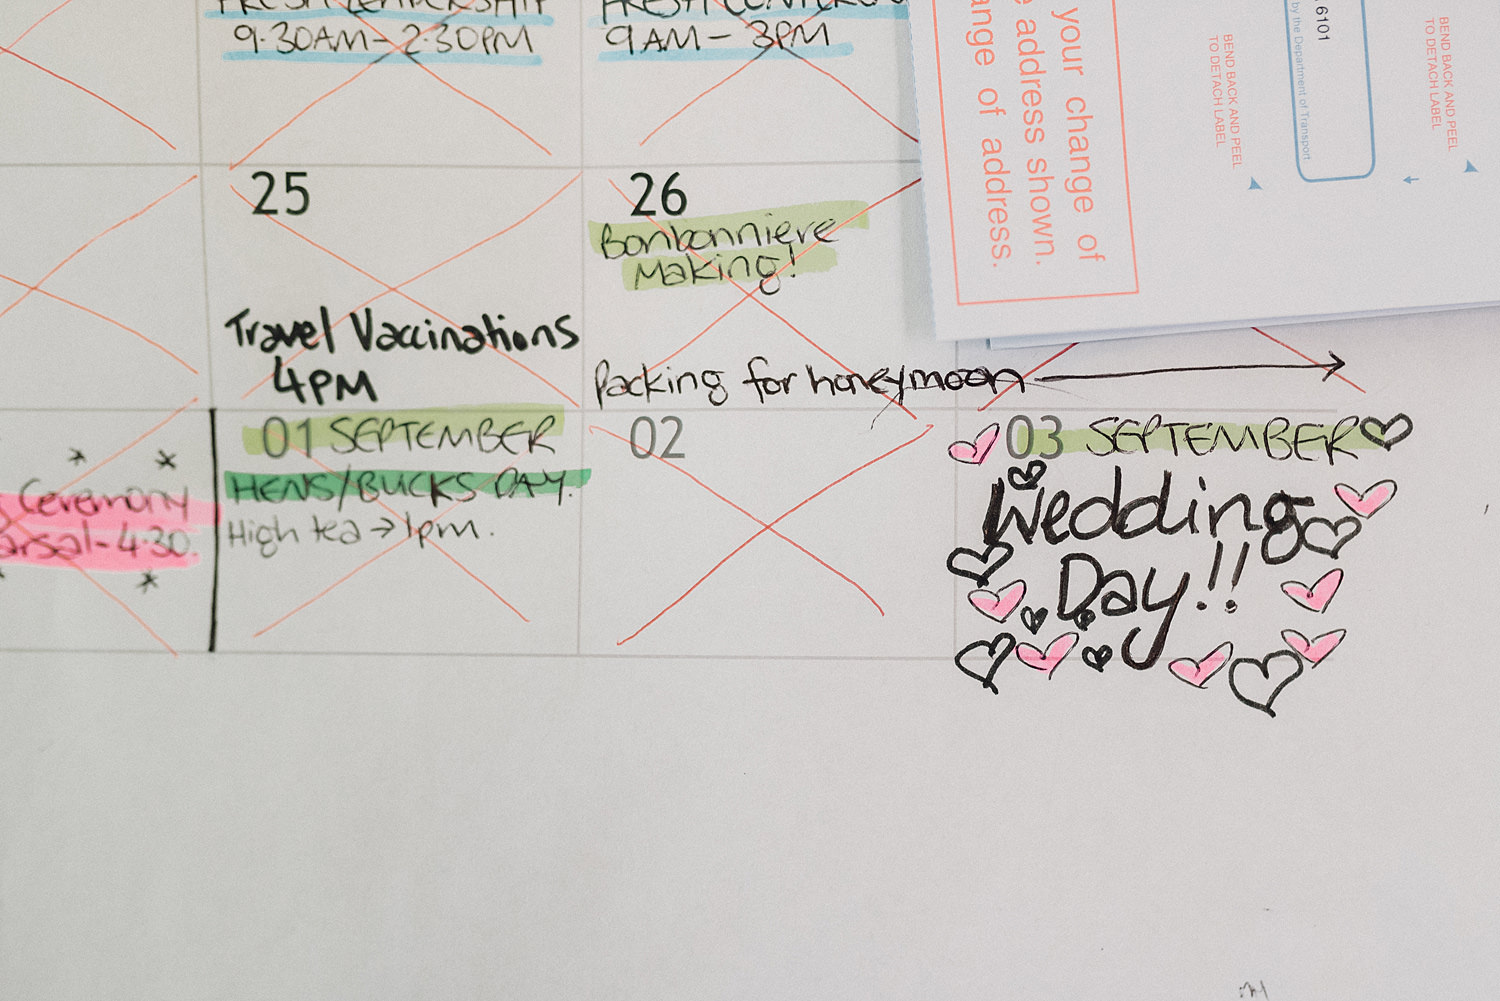 FRESH LEADERSHIP
9.30AM - 2.30PM
9AM - 3PM
your change of
address shown.
of address.
6101
by the Department of Transport
BEND BACK AND PEEL
TO DETACH LABEL
BEND BACK AND PEEL
TO DETACH LABEL
25
Travel Vaccinations
4PM
26
Bonbonniere
Making!
Packing for honeymoon
Ceremony
4.30.
01 SEPTEMBER
HENS/BUCKS DAY.
High tea → 1pm.
02
03 SEPTEMBER
Wedding
Day!!